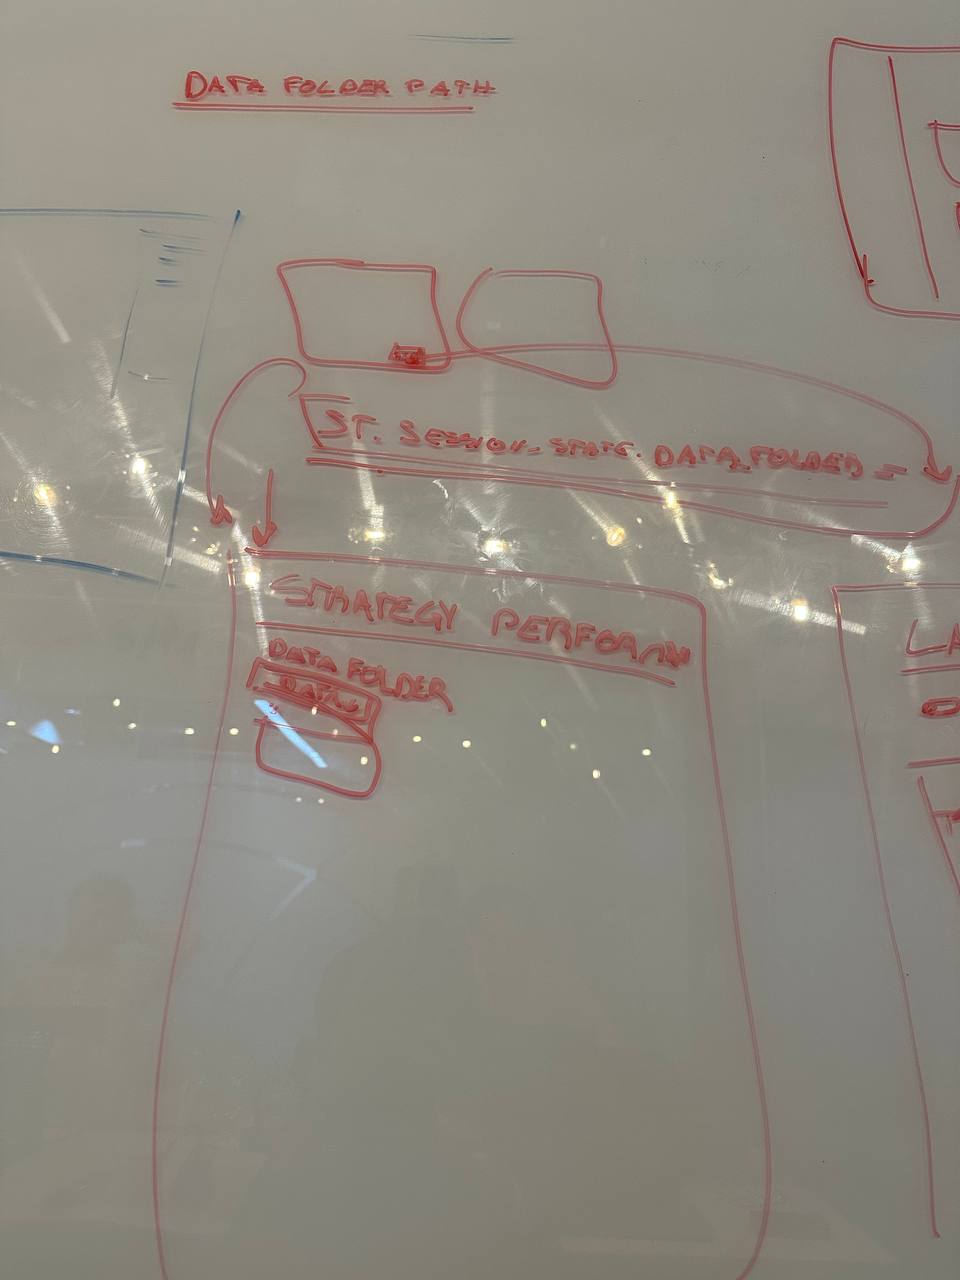 DATA FOLDER PATH
ST. SESSION_STATE. DATA_FOLDER =
STRATEGY PERFORM
DATA FOLDER
DATA
LA